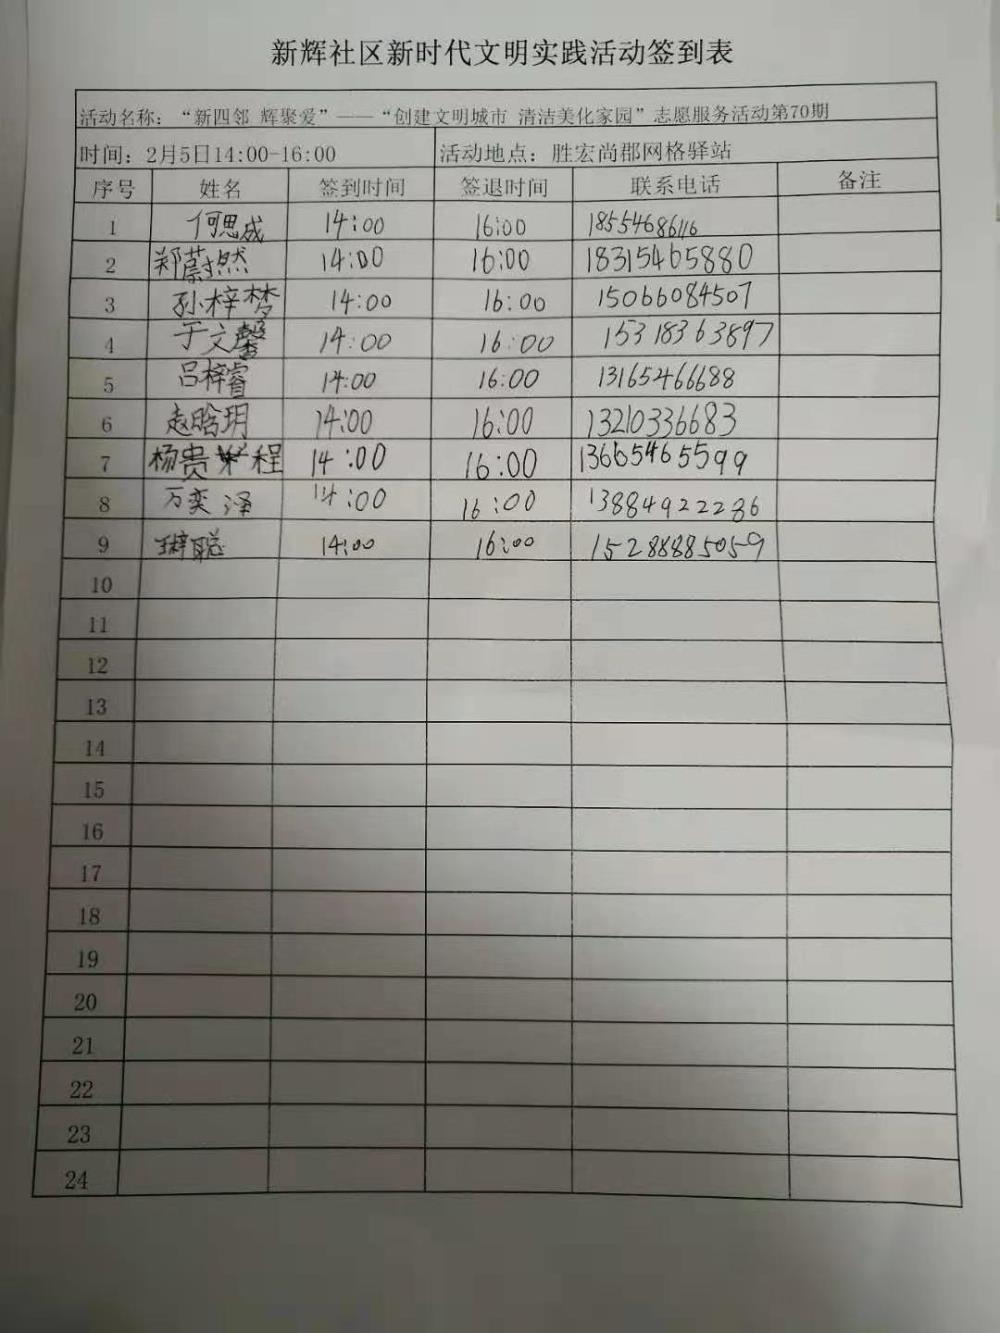 新辉社区新时代文明实践活动签到表
活动名称：“新四邻 辉聚爱”——“创建文明城市 清洁美化家园”志愿服务活动第70期
时间：2月5日14:00-16:00 活动地点：胜宏尚郡网格驿站
序号 姓名 签到时间 签退时间 联系电话 备注
1 何思成 14:00 16:00 18554686116
2 郑蔚然 14:00 16:00 18315465880
3 孙梓梦 14:00 16:00 15066084507
4 于文馨 14:00 16:00 15318363897
5 吕梓睿 14:00 16:00 13165466688
6 赵晗玥 14:00 16:00 13210336683
7 杨贵程 14:00 16:00 13665465599
8 万奕泽 14:00 16:00 13884922286
9 14:00 16:00 15288885059
10
11
12
13
14
15
16
17
18
19
20
21
22
23
24